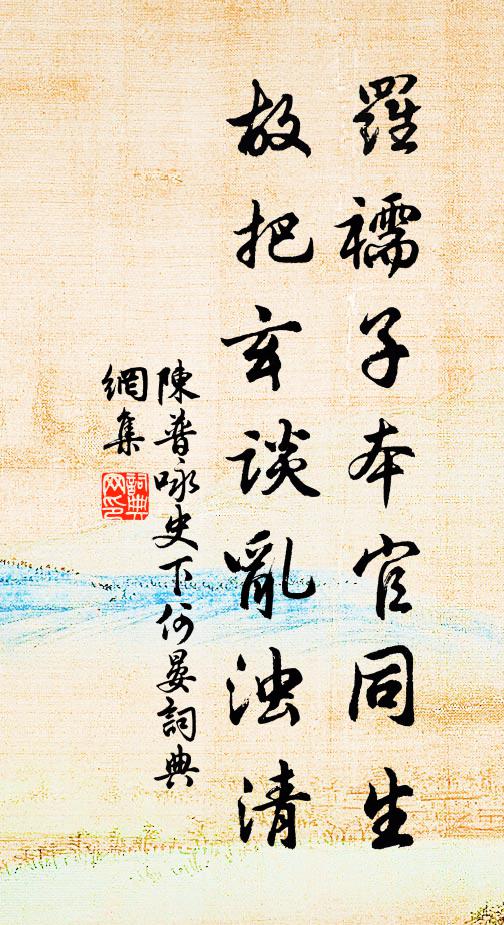 羅襦子本官同生
故把玄谈亂浊清
陳普咏史下何晏詞典
網集
詞典
网印